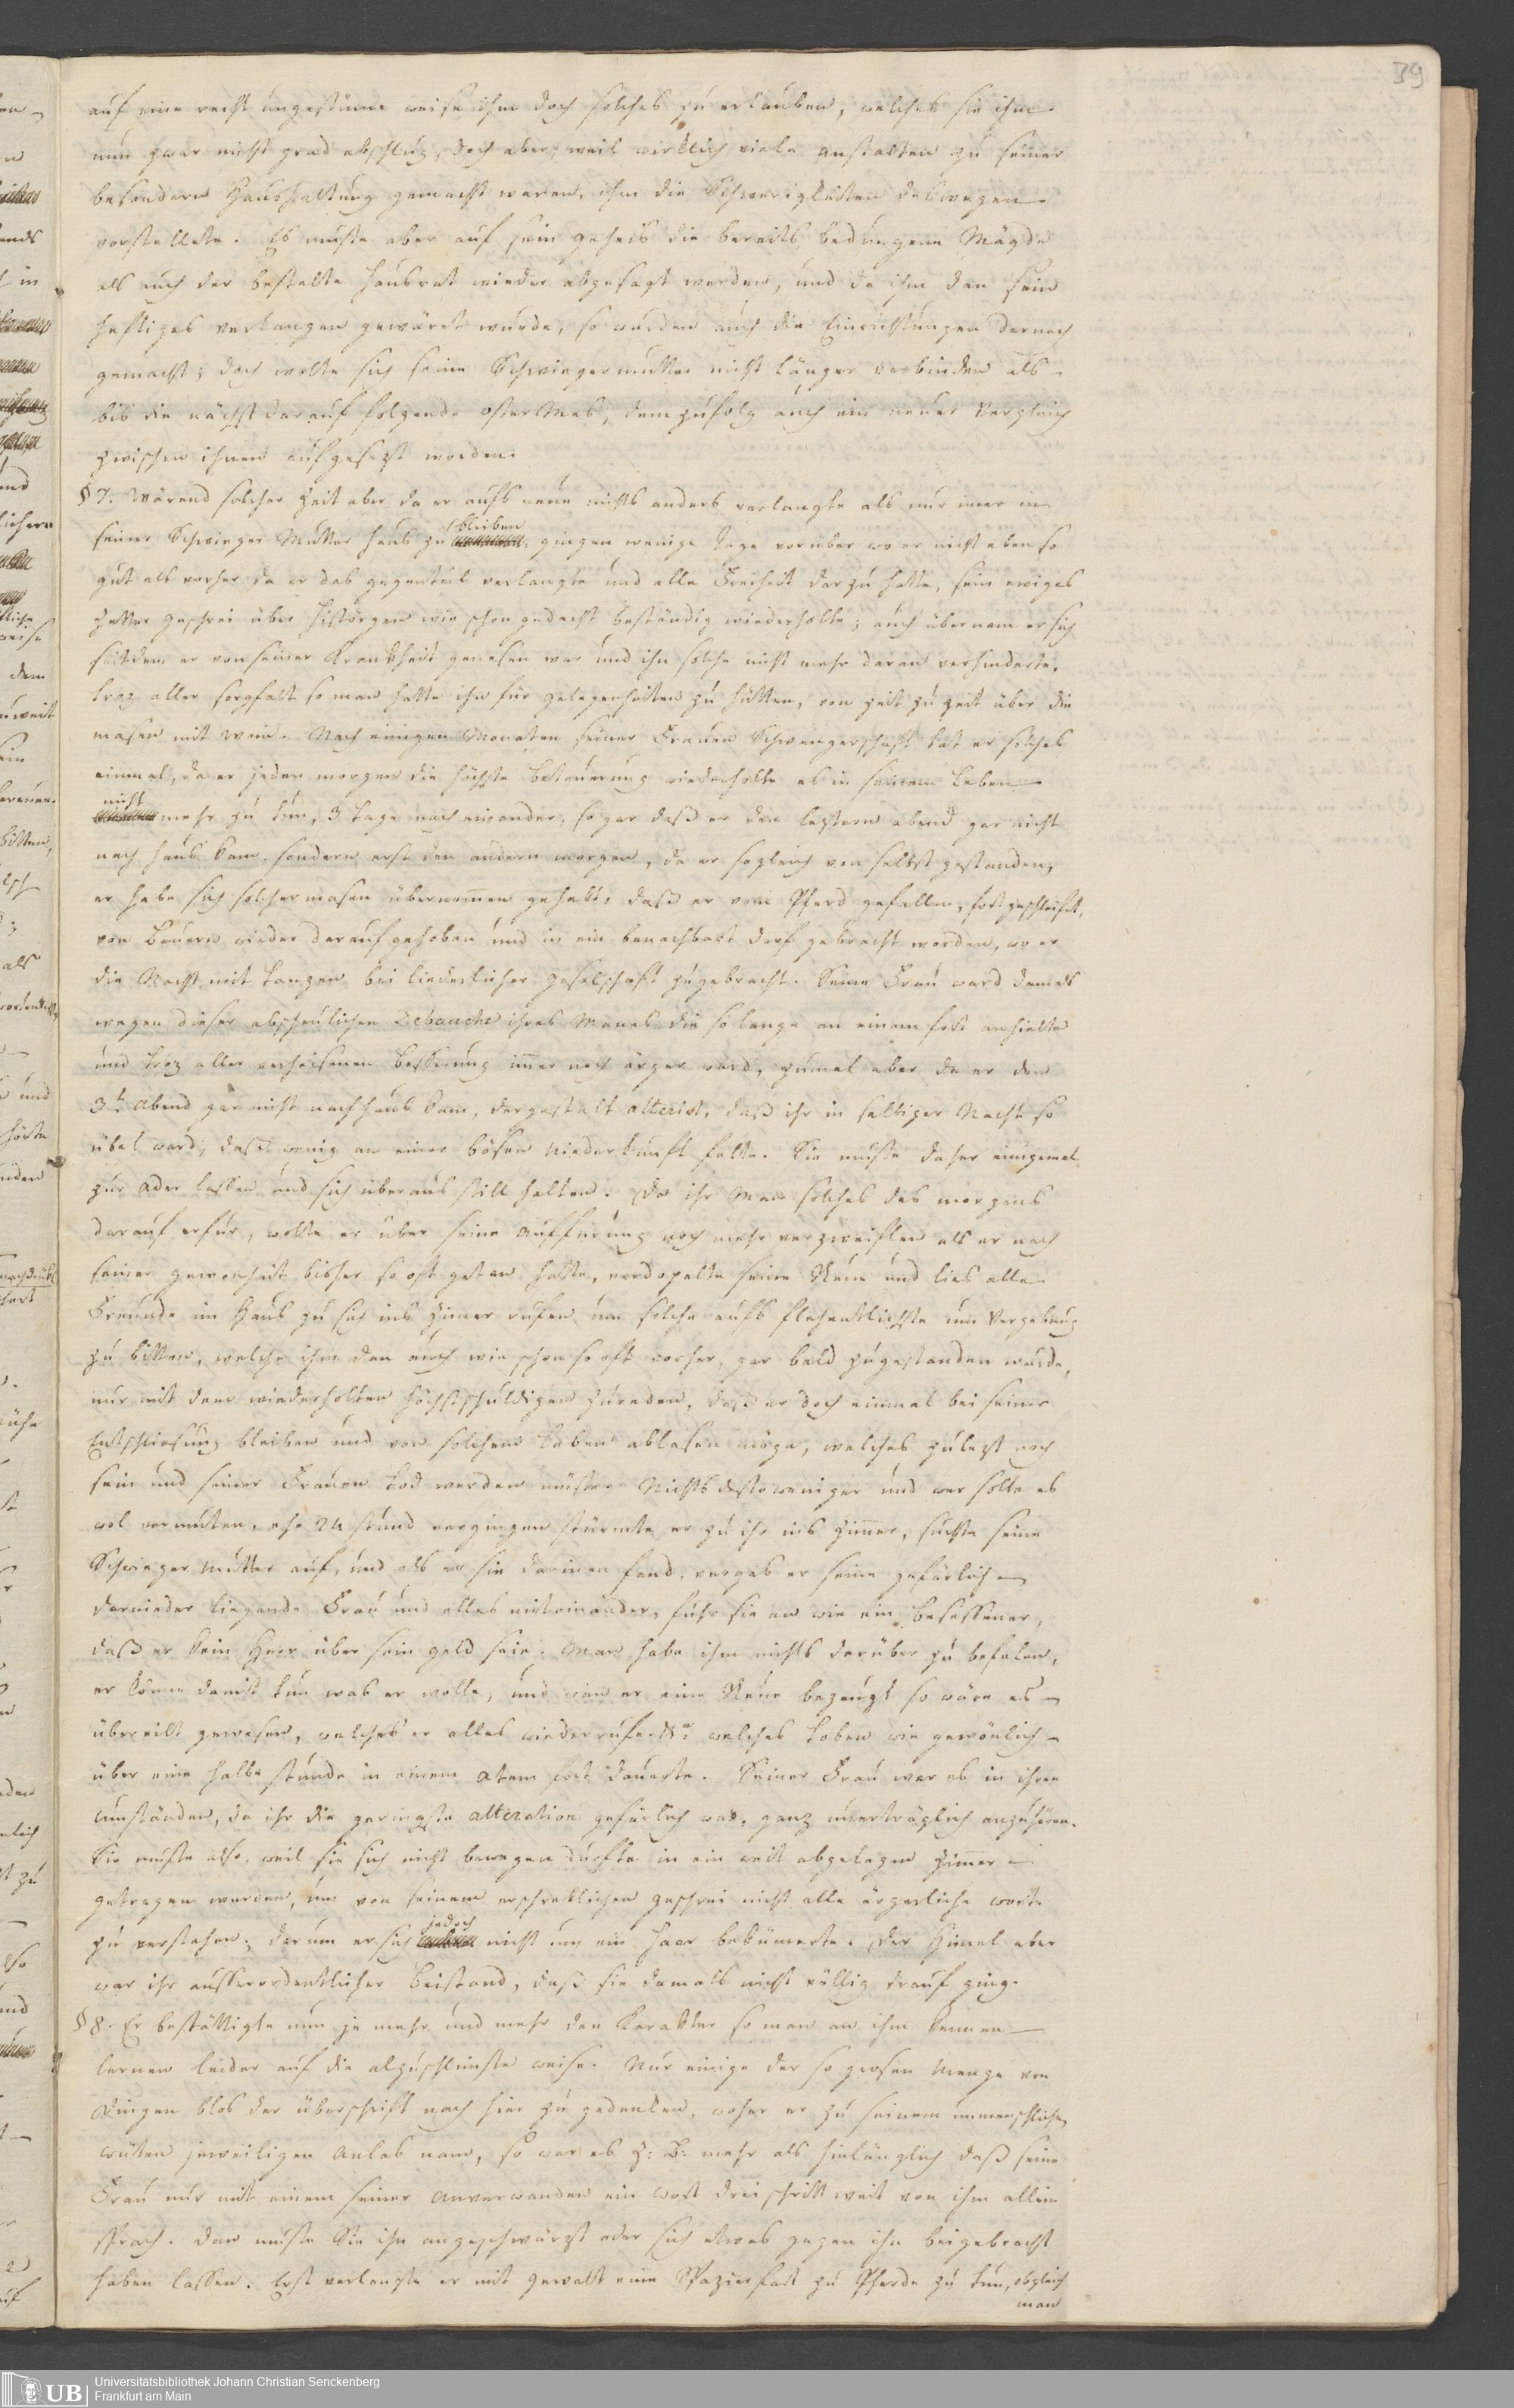 39
auf eine recht ungestüme weise ihm doch solches zu erlauben, welches sie ihm
nun zwar nicht grad abschlug, doch aber, weil wirklich viele anstalten zu seiner
besondern Haushaltung gemacht waren, ihm die Schwerigkeiten deswegen
vorstellete. Es muste aber auf sein geheis die bereits bedungene Mägde
als auch der bestelte hausrat wieder abgesagt werden, und da ihm dan sein
heftiges verlangen gewäret wurde, so wurden auch die Einrichtungen darnach
gemacht; doch wolte sich seine Schwiegermutter nicht länger verbinden als
bis die nächst darauf folgende ostermes, dem zufolg auch ein neuer Vergleich
zwischen ihnen aufgesezt worden.
§ 7. Wärend solcher Zeit aber da er aufs neue nichts anders verlangte als nur imer in
seiner Schwieger Mutter haus zu bleiben, gingen wenige tage vorüber wo er nicht eben so
gut als vorher da er das gegenteil verlangte und alle Freiheit darzu hatte, sein ewiges
Zetter geschrei über histörgen wie schon gedacht beständig wiederholte; auch übernam er sich
seitdem er von seiner Krankheit genesen war und ihn solche nicht mehr daran verhinderte,
troz aller sorgfalt so man hatte ihn für gelegenheiten zu hütten, von zeit zu zeit über die
masen mit wein. Nach einigen Monaten seiner Frauen Schwangerschaft tat er solches
einmal, da er jeden morgen die höchste beteuerung wiederholte es in seinem leben
nicht mehr zu tun, 3 tage nach einander, so gar daß er den leztern abend gar nicht
nach haus kam, sondern erst den andern morgen, da er sogleich von selbst gestanden,
er habe sich solchermasen übernommen gehabt, daß er vom Pferd gefallen, fort geschleift,
von bauern wieder darauf gehoben und in ein benachbart dorf gebracht worden, wo er
die Nacht mit tanzen bei liederlicher geselschaft zugebracht. Seine Frau ward damals
wegen dieser abscheulichen Debauche ihres Manes die so lange an einem fort anhielte
und troz aller verheisenen besserung immer noch ärger ward, zumal aber da er den
3t. Abend gar nicht nach haus kam, dergestalt alterirt, daß ihr in selbiger Nacht so
übel ward, daß wenig an einer bösen Niederkunft fehlte. Sie muste daher einigemal
zur ader lassen und sich überaus still halten. Da ihr Man solches des morgens
darauf erfur, wolte er über seine Aufführung noch mehr verzweiflen als er nach
seiner gewonheit bisher so oft getan hatte, verdopelte seine Reue und lies alle
Freunde im Haus zu sich ins Zimer rufen um solche aufs flehentlichste um Vergebung
zu bitten, welche ihm dan auch wie schon so oft vorher, gar bald zugestanden wurde,
nur mit dem wiederholten höchstschuldigen zureden, daß er doch einmal bei seiner
Entschliesung bleiben und von solchem leben ablasen möge, welches zulezt noch
sein und seiner Frauen tod werden müste. Nichts destoweniger und wer solte es
wol vermuten, ehe 24 stund vergingen stürmte er zu ihr ins Zimmer, suchte seine
Schwieger Mutter auf, und als er sie darinen fand, vergas er seine gefärlich
darnieder liegende Frau und alles miteinander, fuhr sie an wie ein besessener,
daß er kein Herr über sein geld seie. Man habe ihm nichts darüber zu befelen,
er könne damit tun was er wolle, und wan er eine Reue bezeugt so wäre es
übereilt gewesen, welches er alles wiederrufe. welches toben wie gewönlich
über eine halbe stunde in einem Atem fort dauerte. Seiner Frau war es in ihren
Umständen, da ihr die geringste alteration gefärlich war, ganz unerträglich anzuhören.
Sie muste also, weil sie sich nicht bewegen durfte in ein weit abgelegen Zimmer
getragen werden, um von seinem erschreklichen geschrei nicht alle ärgerliche worte
zu verstehen; darum er sich jedoch nicht um ein haar bekümerte. Der Himel aber
war ihr ausserordentlicher beistand, daß sie damals nicht völlig drauf ging.
§ 8. Er bestättigte nun je mehr und mehr den Karakter so man an ihm kennen
lernen leider auf die alzuschlimste weise. Nur einige der so grosen Menge von
Dingen blos der überschrift nach hier zu gedenken, woher er zu seinem unmenschlichen
wüten jeweiligen Anlas nam, so war es z: B: mehr als hinlänglich daß seine
Frau nur mit einem seiner Anverwanden ein wort drei schritt weit von ihm allein
sprach. Dan muste Sie ihn angeschwärzt oder sich etwas gegen ihn beigebracht
haben lassen. Erst verlangte er mit gewalt eine Spazierfart zu Pferde zu tun, obgleich
man
UB
Universitätsbibliothek Johann Christian Senckenberg
Frankfurt am Main